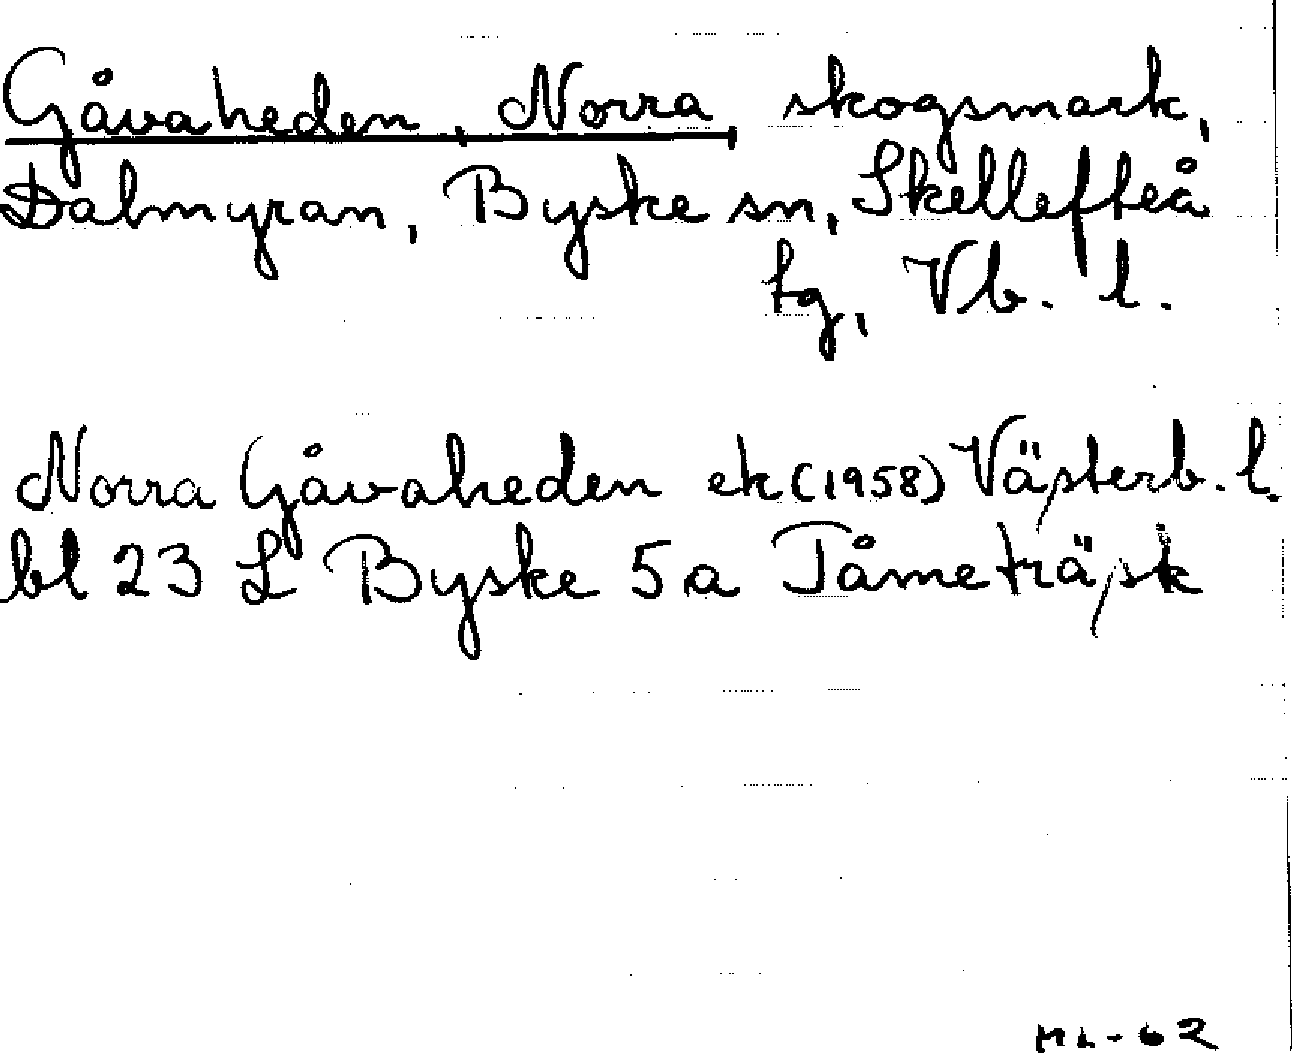 Gåvaheden, Norra skogsmark,
Dalmyran, Byske sn, Skellefteå
tg, Vb. l.
Norra Gåvaheden ek (1958) Västerb. l.
bl 23 L Byske 5 a Tåmeträsk
ML-62